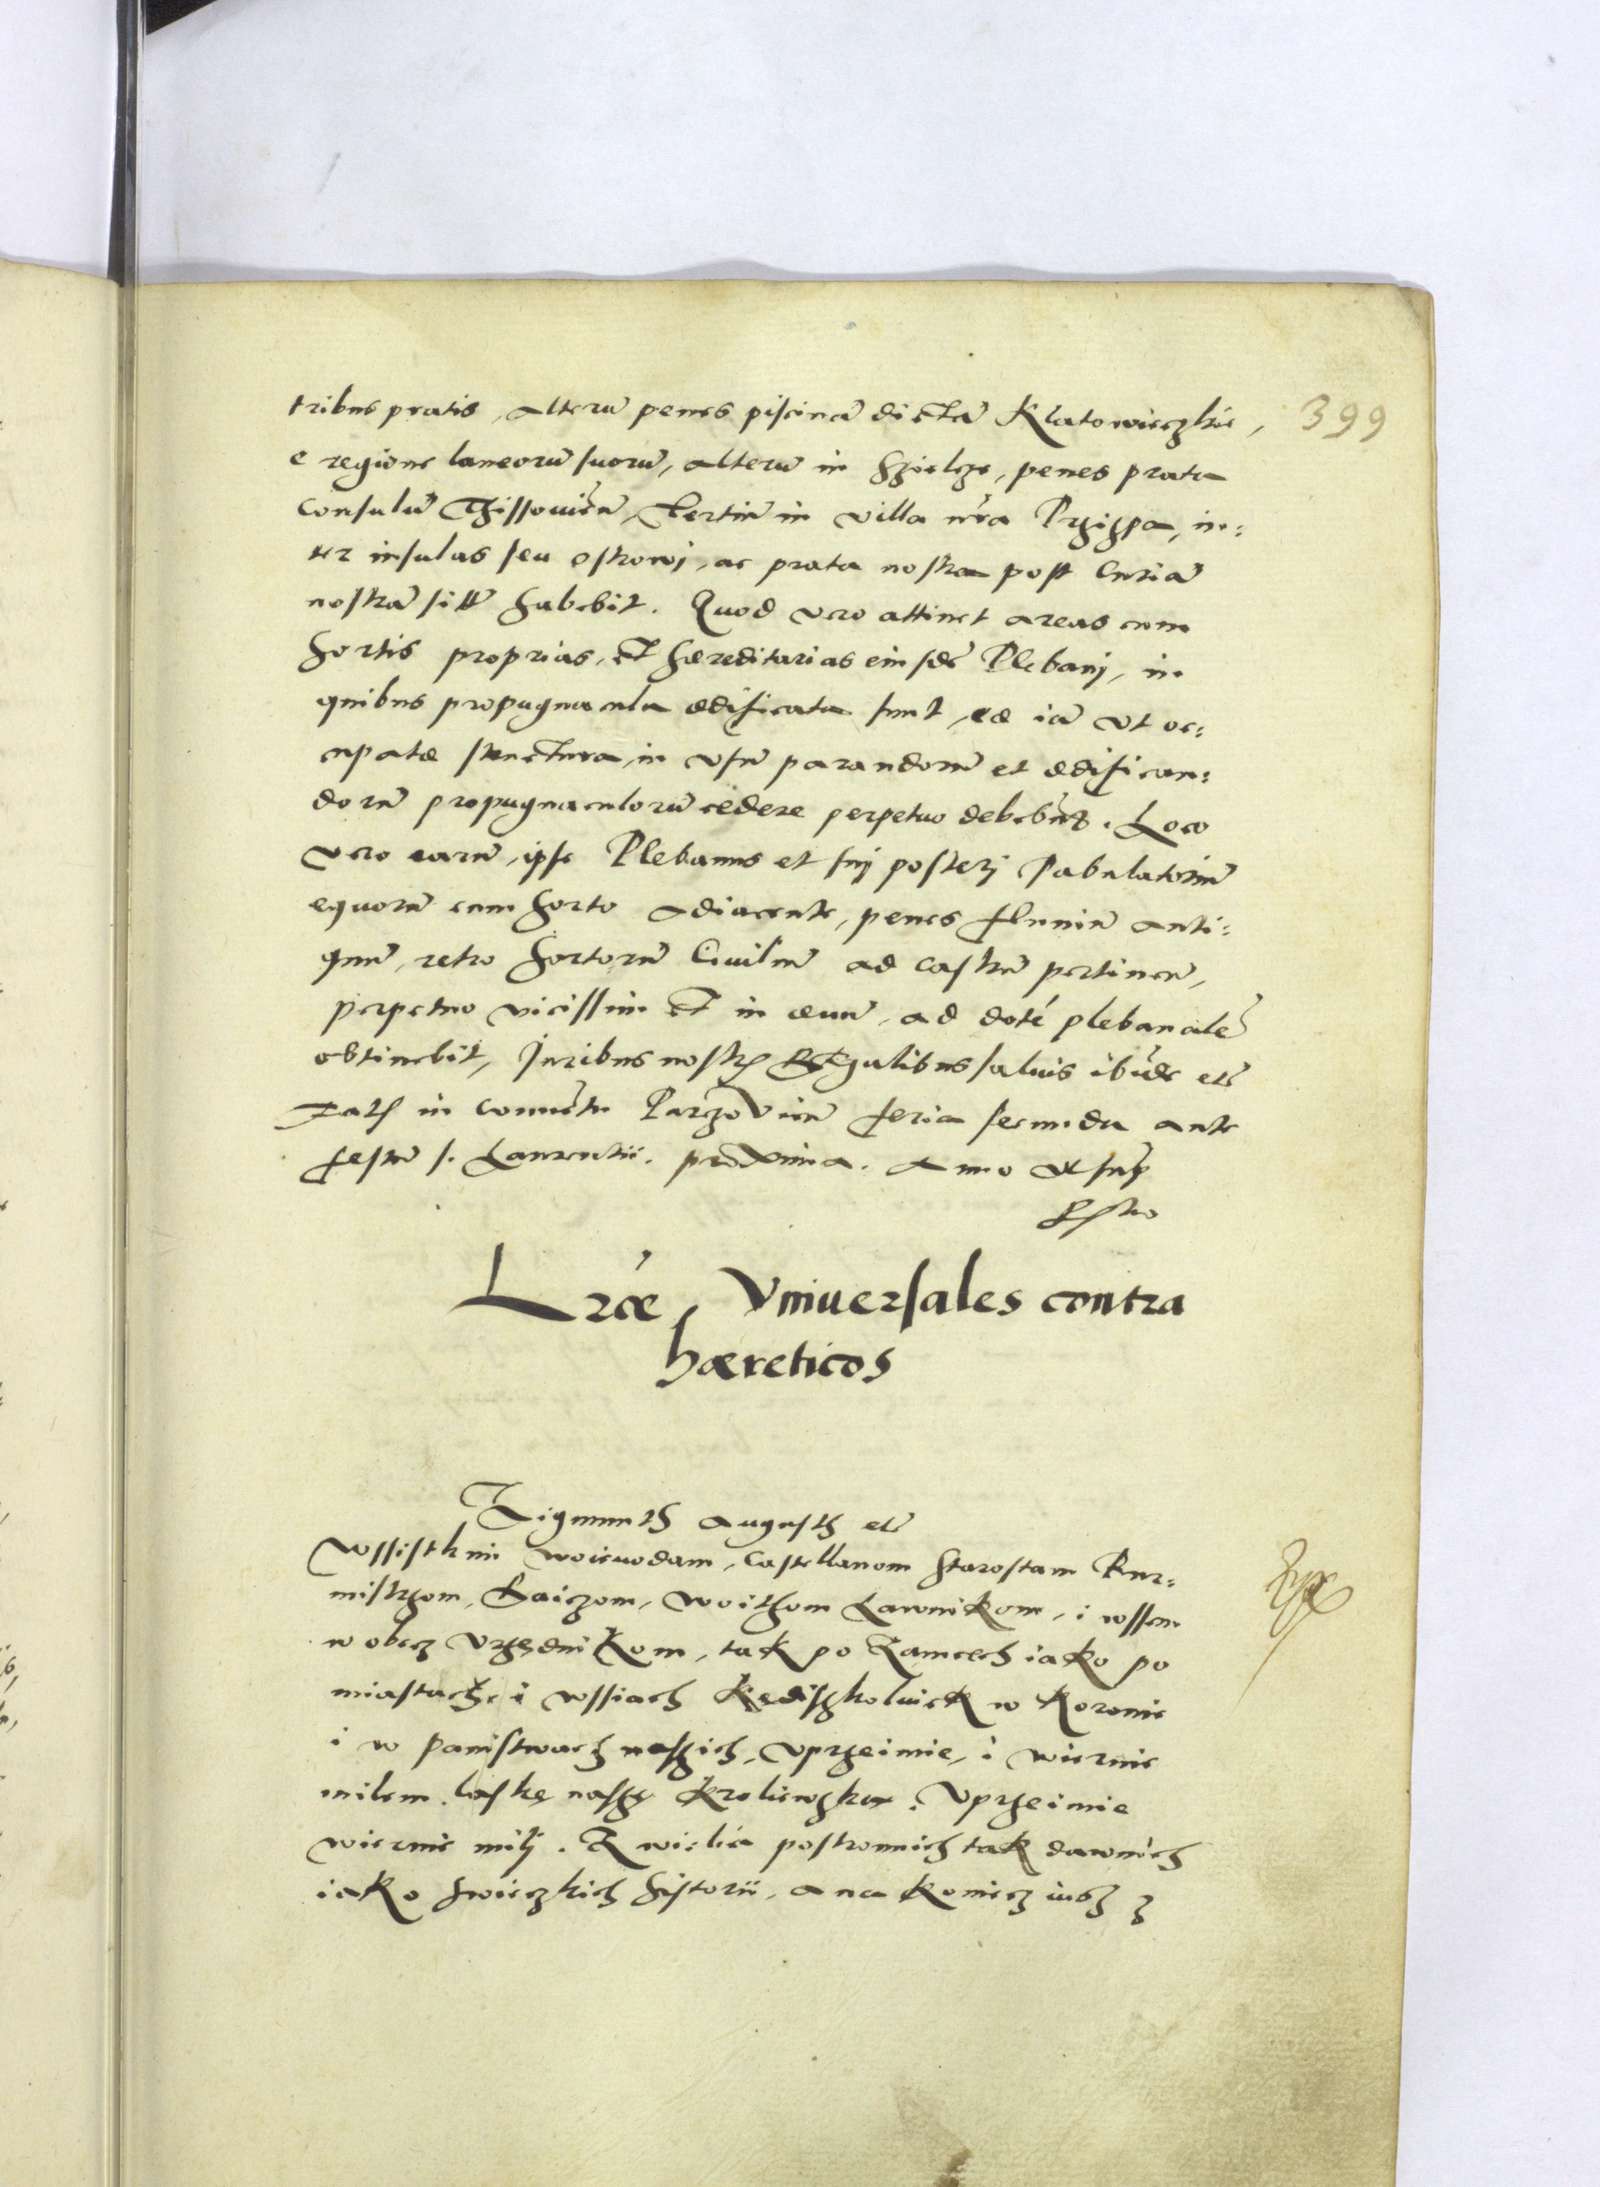 399
tribus pratis, alterũ penes piscinã dictã Klatowieczkie,
e regione laneorũ suorũ, alterũ in Szielcze, penes prata
Consulũ Thissouieñ, tertiũ in villa nr̃a Przizpa, in:
ter insulas seu ostrowi, ac prata nostra post Curiã
nostrã sitt̃ habebit. Quod vero attinet areas cum
hortis proprias, et hæreditarias eiusdẽ Plebani, in
quibus propugnacula ædificata sunt, eæ iã vt oc:
cupatæ structura, in vsũ parandorũ et ædifican:
dorũ propugnaculorũ cedere perpetuo debebũt. Loco
vero earũ, ipse Plebanus et sui posteri Pabulatoriũ
equorũ cum horto adiacente, penes fluuiũ anti:
quũ, retro hortorũ Ciuiliũ ad castrũ pertineñ,
perpetuo vicissim et in æuũ, ad dotẽ plebanalẽ
obtinebit, Juribus nostris Regalibus saluis ibidẽ etc̃
Dat̃ in conuẽtu Parczouieñ feria secunda ante
festũ s. Laurentii. proxima. Anno ut sup̃

Lr̃æ Vniuersales contra
hæreticos

Zigmunth Augusth etc̃
Wssistkim woieuodam, Castellanom Starostam Bur:
mistrzom, Raiczom, Woithom Lawnikom, i wssem
w obecz Vrzędnikom, tak po Zamcech iako po
miastach i wssiach kędiszkolwiek w Koronie
i w panistwach naszich, vprzeimie, i wiernie
milem. laskę naszę Krolewską. Vprzeimie
wiernie mili. Z wielia postronnich tak dawnich
iako swieczkich historii, a na koniecz iusz z